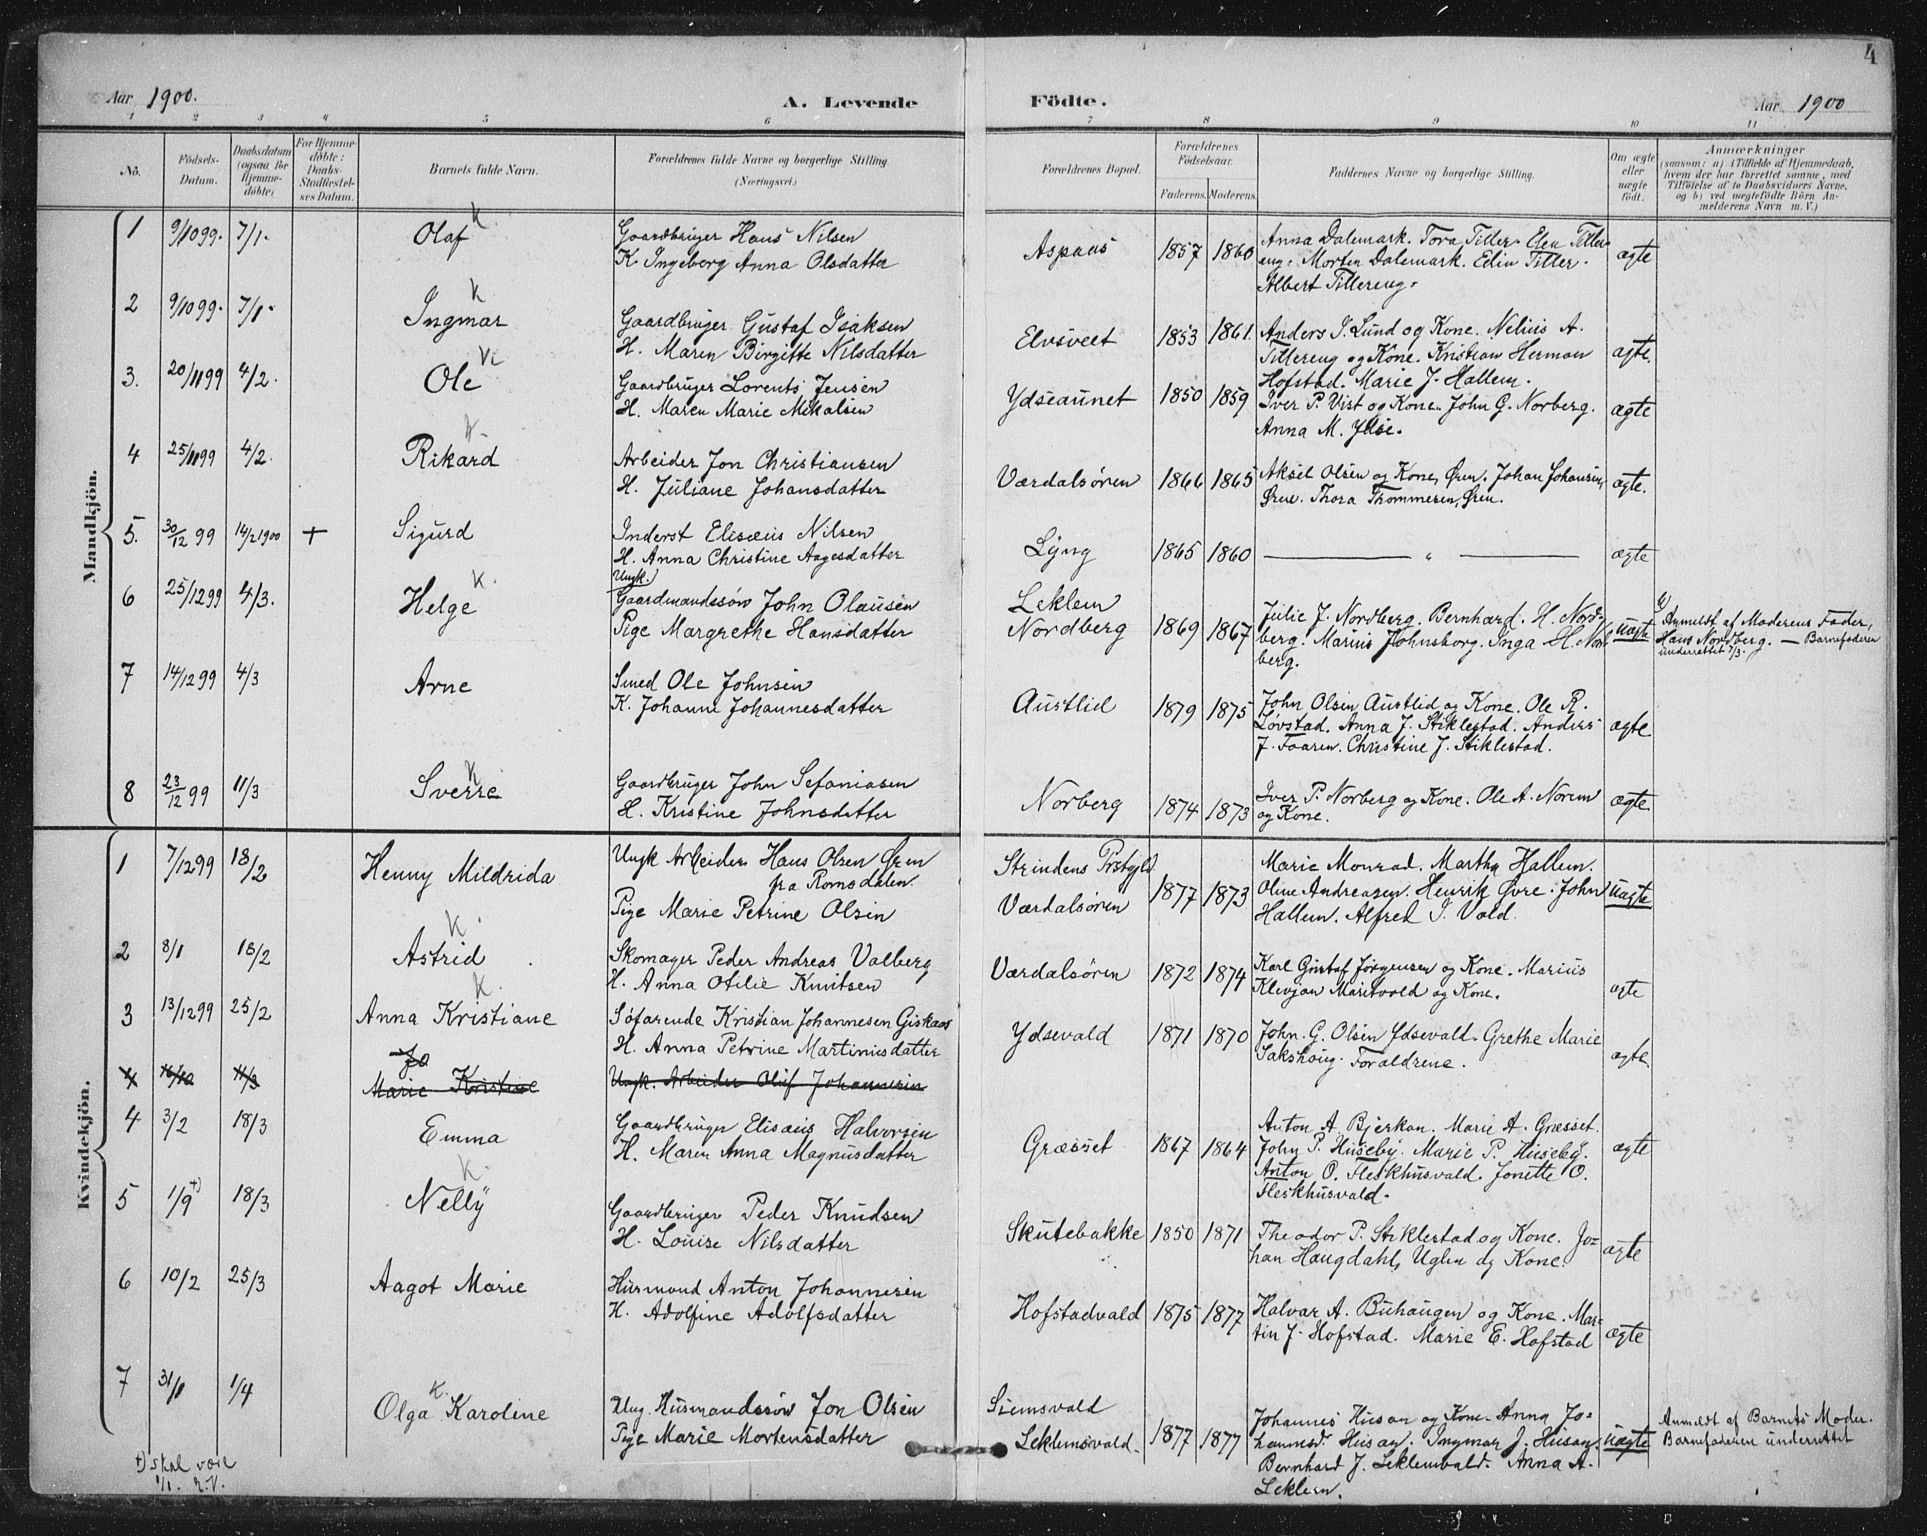 4
Aar 1900. A. Levende Födte. Aar 1900
1 2 3 4 5 6 7 8 9 10 11
No. Födsels-Datum. Daabsdatum (ogsaa for Hjemmedöbte) For Hjemmedöbte: Daabs-Stadfæstelses Datum. Barnets fulde Navn. Forældrenes fulde Navne og borgerlige Stilling. (Næringsvei.) Forældrenes Bopæl. Forældrenes Födselsaar. Faderens. Moderens. Faddernes Navne og borgerlige Stilling. Om ægte eller uægte födt. Anmærkninger (saasom: a) i Tilfælde af Hjemmedaab, hvem der har forrettet samme, med Tilföielse af to Daabsvidners Navne, og b) ved uægtefödte Börn Anmelderens Navn m. V.)
Mandkjön.
1 9/10 99. 7/1. Olaf K Gaardbruger Hans Nilsen Aspaas 1857 1860 Anna Dalemark. Tora Tiller. Elen Tiller-
K. Ingeborg Anna Olsdatter eng. Morten Dalemark. Edin Tiller. ægte
Albert Tillereng.
2 9/10 99. 7/1. Ingmar K Gaardbruger Gustaf Isaksen Elvsveet 1853 1861. Anders J. Lund og Kone. Nelius A.
H. Maren Birgitte Nilsdatter Tillereng og Kone. Kristian Herman ægte.
3. 20/11 99 4/2. Ole K Gaardbruger Lorents Jensen Ydseaunet 1850 1859 Hofstad. Marie J. Hallem.
H. Maren Marie Mikalsen Iver P. Vist og Kone. John G. Norberg. ægte
Anna M. Ydse.
4 25/11 99 4/2. Rikard K. Arbeider Jon Christiansen Værdalsören 1866 1865 Aksel Olsen og Kone, Øren. Johan Johansen,
H. Juliane Johansdatter Øren. Thora Thommesen, Øren. ægte.
5. 30/12 99 14/2 1900 + Sigurd Inderst Elisæus Nilsen Lyng 1865 1860 — „ — ægte
H. Anna Christine Aagesdatter
6 25/12 99 4/3. Helge K. Ungk.) Gaardmandssøn John Olausen Leklem
Pige Margrethe Hansdatter Nordberg 1869 1867 Julie J. Nordberg. Bernhard. H. Nord-
berg. Marius Johnsborg. Inga H. Nord- uægte Anmeldt af Moderens Fader,
berg. Hans Nordberg. — Barnefaderen
underrettet 7/3.
7 14/12 99 4/3 Arne Smed Ole Johnsen Austlid 1879 1875 John Olsen Austlid og Kone. Ole R.
K. Johanne Johannesdatter Løvstad. Anna J. Stiklestad. Anders ægte
J. Faaren. Christine J. Stiklestad.
8 23/12 99 11/3 Sverre K Gaardbruger John Sefaniasen Norberg 1874 1873 Iver P. Norberg og Kone. Ole A. Norem ægte
H. Kristine Johnsdatter og Kone.
Kvindekjön.
1 7/12 99 18/2 Henny Mildrida Ungk Arbeider Hans Olsen Øren Strindens Præstgjld Marie Monrad. Martha Hallem.
fra Romsdalen. 1877 1873 Oline Andreasen. Henrik Øvre. John uægte
Pige Marie Petrine Olsen Værdalsören Hallem. Alfred J. Vold.
2 8/1 18/2 Astrid K. Skomager Peder Andreas Valberg Værdalsören 1872 1874 Karl Gustaf Jörgensen og Kone. Marius
H. Anna Otilie Knutsen Klevjan Maritvold og Kone. ægte
3 13/12 99 25/2 Anna Kristiane K. Söfarende Kristian Johannesen Giskaas Ydsevald 1871 1870 John. G. Olsen Ydsevald. Grethe Marie
H. Anna Petrine Martiniusdatter Sakshaug. Forældrene. ægte.
4 16/12 11/3 Marie Kristine Ungk. Arbeider Oluf Johannesen
4 3/2 18/3 Emma Gaardbruger Elisæus Halvorsen Græsset 1867 1864 Anton A. Bjerkan. Marie A. Græsset.
H. Maren Anna Magnusdatter John P. Huseby. Marie P. Huseby. ægte
Anton O. Fleskhusvald. Jonette O.
Fleskhusvald.
5 1/9 +) 18/3 Nelly K. Gaardbruger Peder Knudsen Skutebakke 1850 1871 Theodor P. Stiklestad og Kone. Jo-
H. Louise Nilsdatter han Haugdahl, Uglen og Kone. ægte
6 10/2 25/3 Aagot Marie Husmand Anton Johannesen Hofstadvald 1875 1877 Halvar A. Buhaugen og Kone. Mar-
H. Adolfine Adolfsdatter tin J. Hofstad. Marie E. Hofstad ægte
7 31/1 1/4 Olga Karoline K. Ung. Husmandssøn Jon Olsen Siemsvald Johannes Husan og Kone. Anna Jo-
Pige Marie Mortensdatter Leklemsvald. 1877 1877 hannesd. Husan. Ingmar J. Husan. uægte Anmeldt af Barnets Moder.
Bernhard J. Leklemvald. Anna A. Barnefaderen underrettet
Leklem.
+) skal være
1/1. R.V.